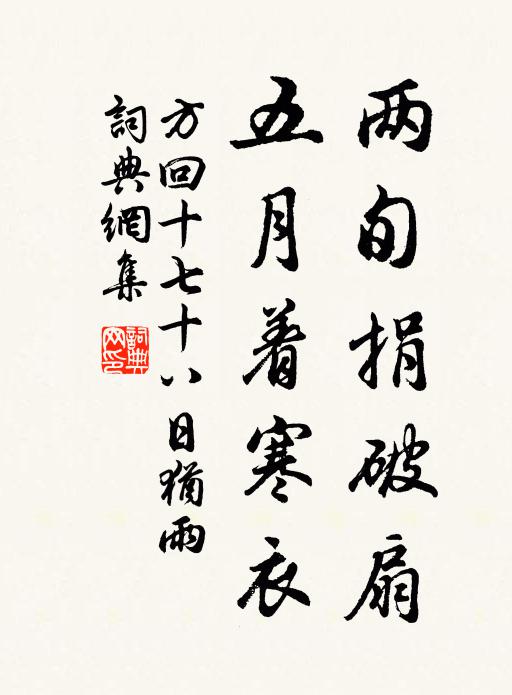 两旬捐破扇
五月着寒衣
方回十七十八日猶雨
詞典網集
詞典網印